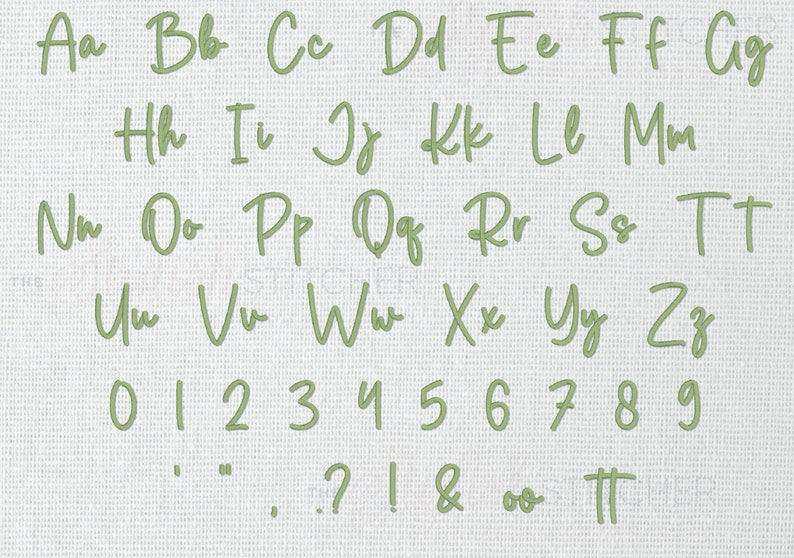 Aa Bb Cc Dd Ee Ff Gg
Hh Ii Jj Kk Ll Mm
Nn Oo Pp Qq Rr Ss Tt
THE STITCHER
Uu Vv Ww Xx Yy Zz
0 1 2 3 4 5 6 7 8 9
' " , . ? ! & oo tt
THE STITCHER